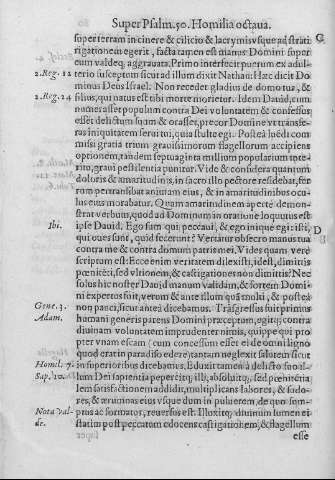 Super Psalm. 50. Homilia octaua.
super terram in cinere & cilicio & lacrymis vsque ad strati
rigationem egerit, facta tamen est manus Domini super
eum valdeq; aggrauata. Primo interfecit puerum ex adul-
2. Reg. 12 terio susceptum sicut ad illum dixit Nathan: Hæc dicit Do
minus Deus Israel. Non recedet gladius de domo tua, &
2. Reg. 24 filius, qui natus est tibi morte morietur. Idem Dauid, cum
numerasset populum contra Dei voluntatem & confessus
esset delictum suum & orasset, precor Domine vt transfe-
ras iniquitatem serui tui, quia stulte egi. Postea luēdi com
missi gratia trium grauissimorum flagellorum accipiens
optionem, tandem septuaginta millium popularium inte
ritu, graui pestilentia punitur. Vide & considera quantum
doloris & amaritudinis, in sacro illo pectore residebat, fer
rum pertransibat animam eius, & in amaritudinibus ocu-
lus eius morabatur. Quam amaritudinem aperte demon-
strat verbum, quod ad Dominum in oratione loquutus est
Ibi. ipse Dauid. Ego sum qui peccaui, & ego inique egi: isti,
qui oues sunt, quid fecerunt? Vertatur obsecro manus tua
contra me & contra domum patris mei. Vides quam vere
scriptum est: Ecce enim veritatem dilexisti, id est, dimittis
pœnitēti, sed vltionem, & castigationes non dimittis? Nec
solus hic noster Dauid manum validam, & fortem Domi-
ni expertus fuit, verum & ante illum quā multi, & postea
Gene. 3. non pauci, sicut antea dicebamus. Trāsgressus fuit primus
Adam. humani generis parens Domini præceptum, egitq; contra
diuinam voluntatem imprudenter nimis, quippe qui pro
pter vnam escam (cum concessum esset ei de omni ligno
quod erat in paradiso edere) tantam neglexit salutem sicut
Homil. 7. in superioribus dicebamus. Eduxit tamen à delicto suo il-
Sap. 10. lum Dei sapientia pepercitq; illi, absoluitq; sed pœnitētia
lem satisfactionem addidit, multiplicans labores, & sudo-
res, & ærumnas eius vsque dum in puluerem, de quo sum-
Nota val- ptus ac formatus, reuersus est. Illuxitq; diuinum lumen ei
de. statim post peccatum edocens castigationem, & flagellum
esse